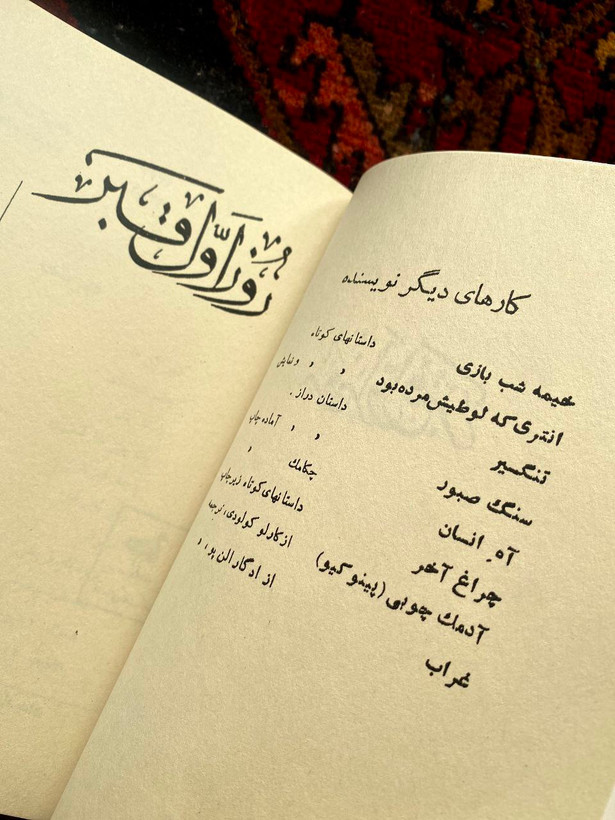 روز اوّل قبر
کارهای دیگر نویسنده
خیمه شب بازی داستانهای کوتاه
انتری که لوطیش مرده بود , , و نمایش
تنگسیر داستان دراز .
سنگ صبور , , آماده چاپ
آه انسان چکامك ,
چراغ آخر داستانهای کوتاه زیر چاپ
آدمك چوبی (پینوکیو) از کارلو کولودی، ترجمه
غراب از ادگار الن پو , ,